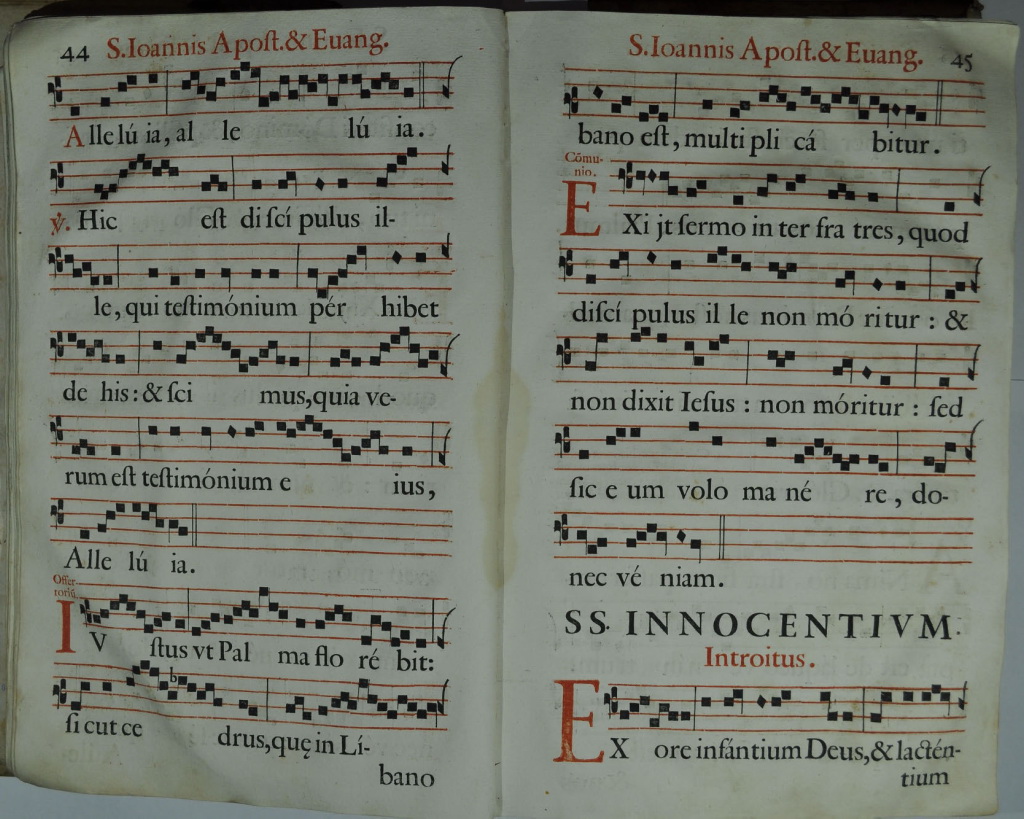 44 S. Ioannis Apost. & Euang.
Alle lú ia, al le lú ia.
℣. Hic est di scí pulus il-
le, qui testimónium pér hibet
de his: & sci mus, quia ve-
rum est testimónium e ius,
Alle lú ia.
Offer-
toriũ.
IV stus vt Pal ma flo ré bit:
si cut ce drus, quę in Lí-
bano
S. Ioannis Apost. & Euang. 45
bano est, multi pli cá bitur.
Cõmu-
nio.
EXi jt sermo in ter fra tres, quod
discí pulus il le non mó ritur: &
non dixit Iesus: non móritur: sed
sic e um volo ma né re, do-
nec vé niam.
SS. INNOCENTIVM.
Introitus.
EX ore infántium Deus, & lactén-
tium